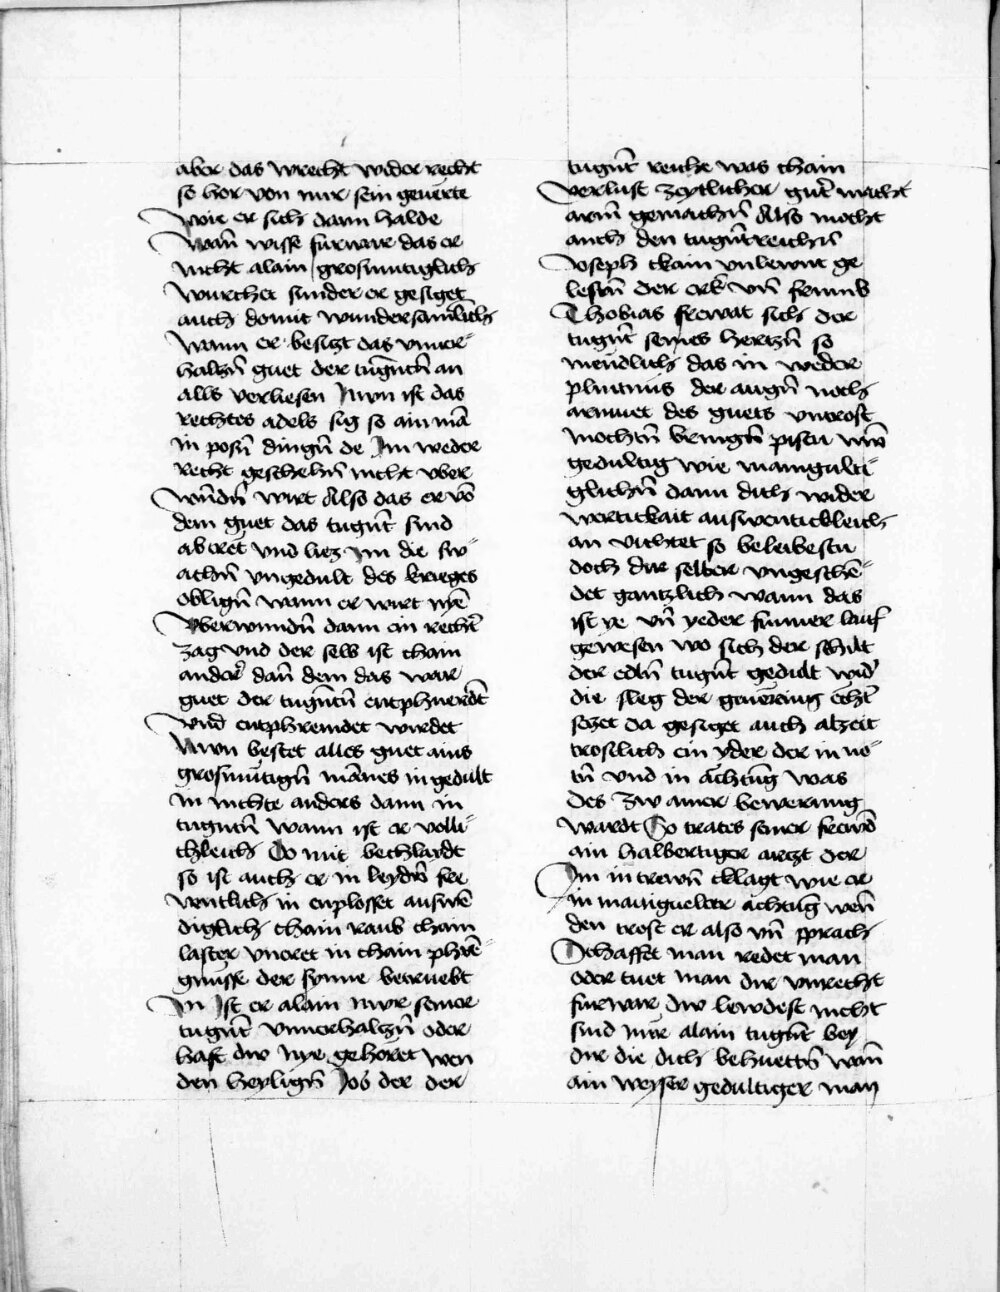 aber das vnrecht wider recht
so hor von mir sein geuerte
Wie er sich dann halde
Wan̄ wisse furwar das er
nicht alain grosmutiglich
wurchet sunder er gesiget
auch domit wundersamlich
Wann er besizt das vnuer-
halzn̄ guet der tugntn̄ an
alls verliesen Nwn ist das
rechtes adels sig so ain mā
in posn̄ dingn̄ de Im weder
recht geschehn̄ nicht vber
wn̄dn̄ wirt Also das er vō
dem guet das tugn̄t sind
ab tret vnd liez im die sw-
achn̄ vngedult des krieges
oblign̄ wann er wirt nyē
Vberwundn̄ dann ein recht
zag vnd der selb ist chain
ander dan̄ dem das war
guet der tugn̄tn̄ entphuerdt
vnd entphremdet wirdet
Nwn bestet alles guet ains
grosmutign̄ mānes in gedult
in nichte anders dann in
tugntn̄ wann ist er volli-
chleich Do mit bechlaidt
so ist auch er in leydn̄ fre
ventlich in enplosset auswē
diglich chain raub chain
laster vneret in chain phrē-
gnusse der synne betruebt
In Ist er alain nwr seiner
tugn̄t vnuerhalzn̄ oder
hast dw nye gehoret wen
den heylign̄ Job der der
tugn̄t reiche was chain
verlust zeytlicher gut̄ macht
arm̄ gemachn̄ Also mocht
auch den tugn̄treichn̄
Joseph chain vnbewrt ge
lestn̄ der erk vn̄ frumb
Thobias frewat sich der
tugn̄t seines hertzn̄ so
meudlich das in weder
plintnus der augn̄ noch
armuet des guets vntrost
mochtn̄ bringn̄ pistu nw̄
gedultig wie manigulti-
glichn̄ dann dich wider
wertickait auswenticklich
an vichtet so beleibestu
doch dir selber vngeschē-
det gantzlich wann das
ist ye vn̄ yeder summer lauf
gewesen wo sich der schilt
der edln̄ tugn̄t gedult wid̄
die sleg der geuering echt
seczet da gesiget auch alzeit
trostlich ein yder der in no-
tn̄ vnd in āchtūg was
des zw ainer bewerung
wardt So trates seiner frewd
ain halbertiger arczt der
Im in trewn̄ chlagt wie er
in manigueltr̄ āchtūg wer̄
den trost er also vn̄ sprach
Schafft man redet man
oder tuet man dir vnrecht
furwar dw lewdest nicht
sind nur alain tugn̄t bey
dir die dich behuettn̄ wan̄
ain weyser gedultiger man